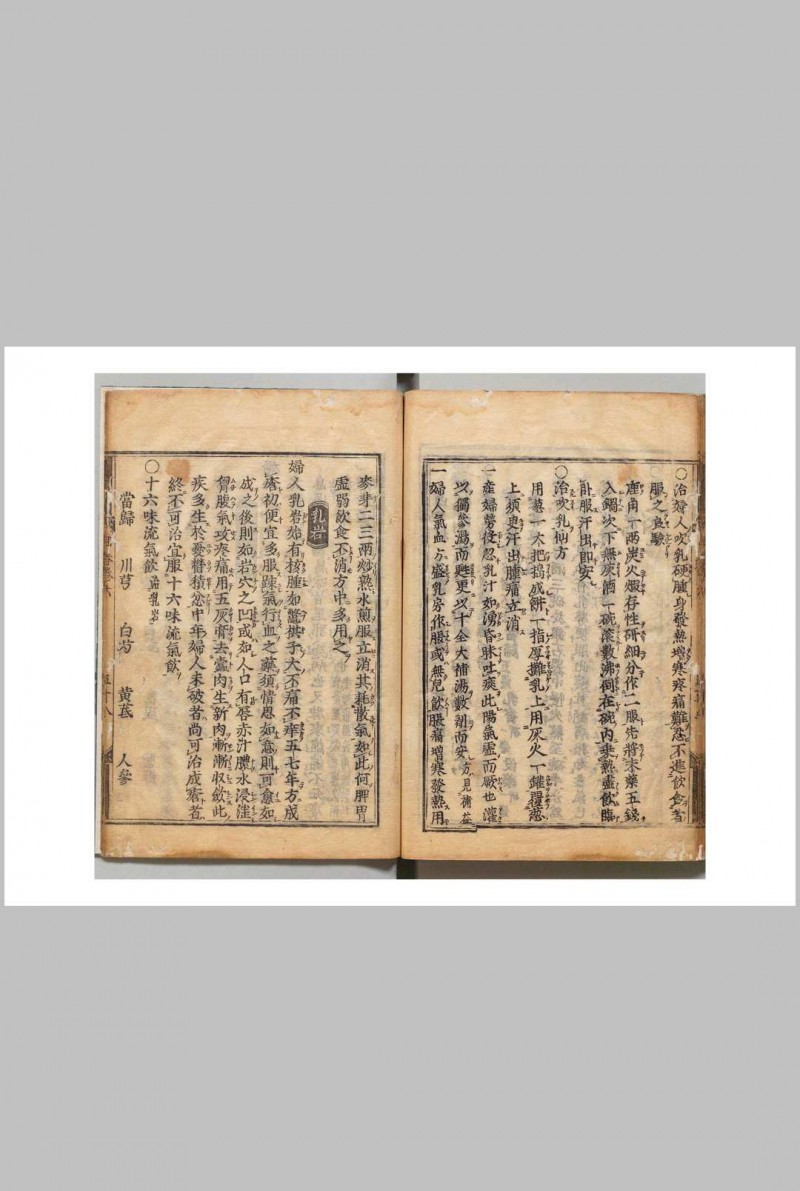 ○治婦人吹乳硬腫身發熱増寒疼痛難忍不進飲食者
服之良驗
鹿角一兩炭火煅存性研細分作二服先將末藥五錢
入鍋次下無灰酒一碗滾數沸倒在碗内乗熱盡飲臨
卧服汗出即安
○治吹乳仙方
用葱一大把搗成餅一指厚攤乳上用灰火一鑵覆葱
上須更汗出腫痛立消
一産婦勞役忍乳汁如湧昏昧吐痰此陽氣虚而厥也灌
以獨參湯而甦更以十全大補湯數劑而安方見補益
一婦人氣血方盛乳房作脹或無兒飲脹痛増寒發熱用
麥芽二三兩炒熟水煎服立消其耗散氣如此何脾胃
虚弱飲食不消方中多用之
乳岩
婦人乳岩始有核腫如鱉棋子大不痛不痒五七年方成
瘡初便宜多服疎氣行血之藥須情思如意則可愈如
成之後則如岩穴之凹或如人口有唇赤汁膿水浸淫
胷腹氣攻疼痛用五灰膏去蠹肉生新肉漸漸収斂此
疾多生於憂欝積忿中年婦人未破者尚可治成瘡者
終不可治宜服十六味流氣飲
○十六味流氣飲 治乳岩
當歸 川芎 白芍 黄芪 人參
五十八